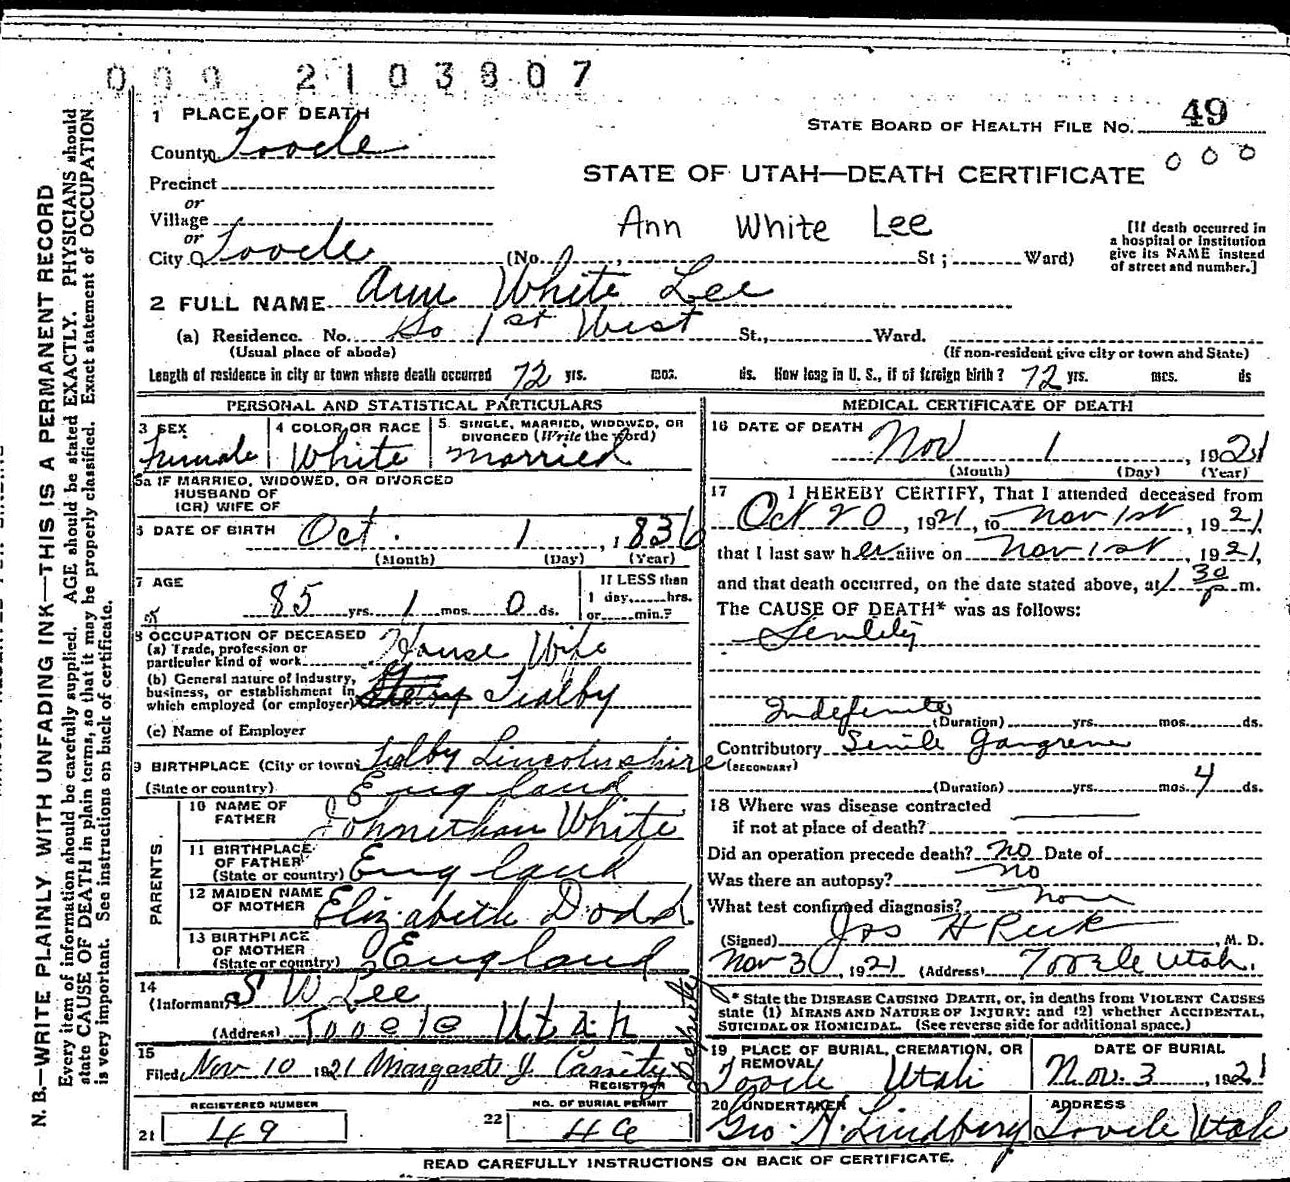 000 2103807
1 PLACE OF DEATH
STATE BOARD OF HEALTH FILE No. 49
County Tooele
000
STATE OF UTAH—DEATH CERTIFICATE
Precinct
or
Village
Ann White Lee
or
City Tooele (No. , St ; Ward)
[If death occurred in
a hospital or institution
give its NAME instead
of street and number.]
2 FULL NAME Ann White Lee
(a) Residence. No. So 1st West St., Ward.
(Usual place of abode) (If non-resident give city or town and State)
Length of residence in city or town where death occurred 72 yrs. mos. ds. How long in U. S., if of foreign birth? 72 yrs. mos. ds
PERSONAL AND STATISTICAL PARTICULARS
3 SEX Female
4 COLOR OR RACE White
5. SINGLE, MARRIED, WIDOWED, OR
DIVORCED (Write the word)
Married
5a IF MARRIED, WIDOWED, OR DIVORCED
HUSBAND OF
(OR) WIFE OF
6 DATE OF BIRTH Oct. 1, 1836
(Month) (Day) (Year)
7 AGE 85 yrs. 1 mos. 0 ds.
If LESS than
1 day, hrs.
or min.?
8 OCCUPATION OF DECEASED
(a) Trade, profession or
particular kind of work House Wife
(b) General nature of Industry,
business, or establishment in
which employed (or employer) Tialby
(c) Name of Employer
9 BIRTHPLACE (City or town) Tialby Lincolnshire
(State or country) England
PARENTS
10 NAME OF
FATHER Johnethan White
11 BIRTHPLACE
OF FATHER
(State or country) England
12 MAIDEN NAME
OF MOTHER Elizabeth Dodd
13 BIRTHPLACE
OF MOTHER
(State or country) England
14
(Informant) S W Lee
(Address) Tooele Utah
15
Filed, Nov 10 1921 Margaret J Cassity Deputy
REGISTRAR
REGISTERED NUMBER
21 49
NO. OF BURIAL PERMIT
22 46
MEDICAL CERTIFICATE OF DEATH
16 DATE OF DEATH
Nov 1, 1921
(Month) (Day) (Year)
17 I HEREBY CERTIFY, That I attended deceased from
Oct 20, 1921, to Nov 1st, 1921,
that I last saw her alive on Nov 1st, 1921,
and that death occurred, on the date stated above, at 1 30 p m.
The CAUSE OF DEATH* was as follows:
Senility
Indefinite
(Duration) yrs. mos. ds.
Contributory Senile Gangrene
(SECONDARY)
(Duration) yrs. mos. 4 ds.
18 Where was disease contracted
if not at place of death?
Did an operation precede death? no Date of
Was there an autopsy? no
What test confirmed diagnosis? none
(Signed) Jos H Peck, M. D.
Nov 3, 1921 (Address) Tooele Utah.
* State the DISEASE CAUSING DEATH, or, in deaths from VIOLENT CAUSES
state (1) MEANS AND NATURE OF INJURY: and (2) whether ACCIDENTAL,
SUICIDAL OR HOMICIDAL. (See reverse side for additional space.)
19 PLACE OF BURIAL, CREMATION, OR
REMOVAL
Tooele Utah
DATE OF BURIAL
Nov. 3, 1921
20 UNDERTAKER
Geo. A. Lindberg
ADDRESS
Tooele Utah
READ CAREFULLY INSTRUCTIONS ON BACK OF CERTIFICATE.
N. B.—WRITE PLAINLY WITH UNFADING INK—THIS IS A PERMANENT RECORD
Every item of information should be carefully supplied. AGE should be stated EXACTLY. PHYSICIANS should
state CAUSE OF DEATH in plain terms, so that it may be properly classified. Exact statement of OCCUPATION
is very important. See instructions on back of certificate.